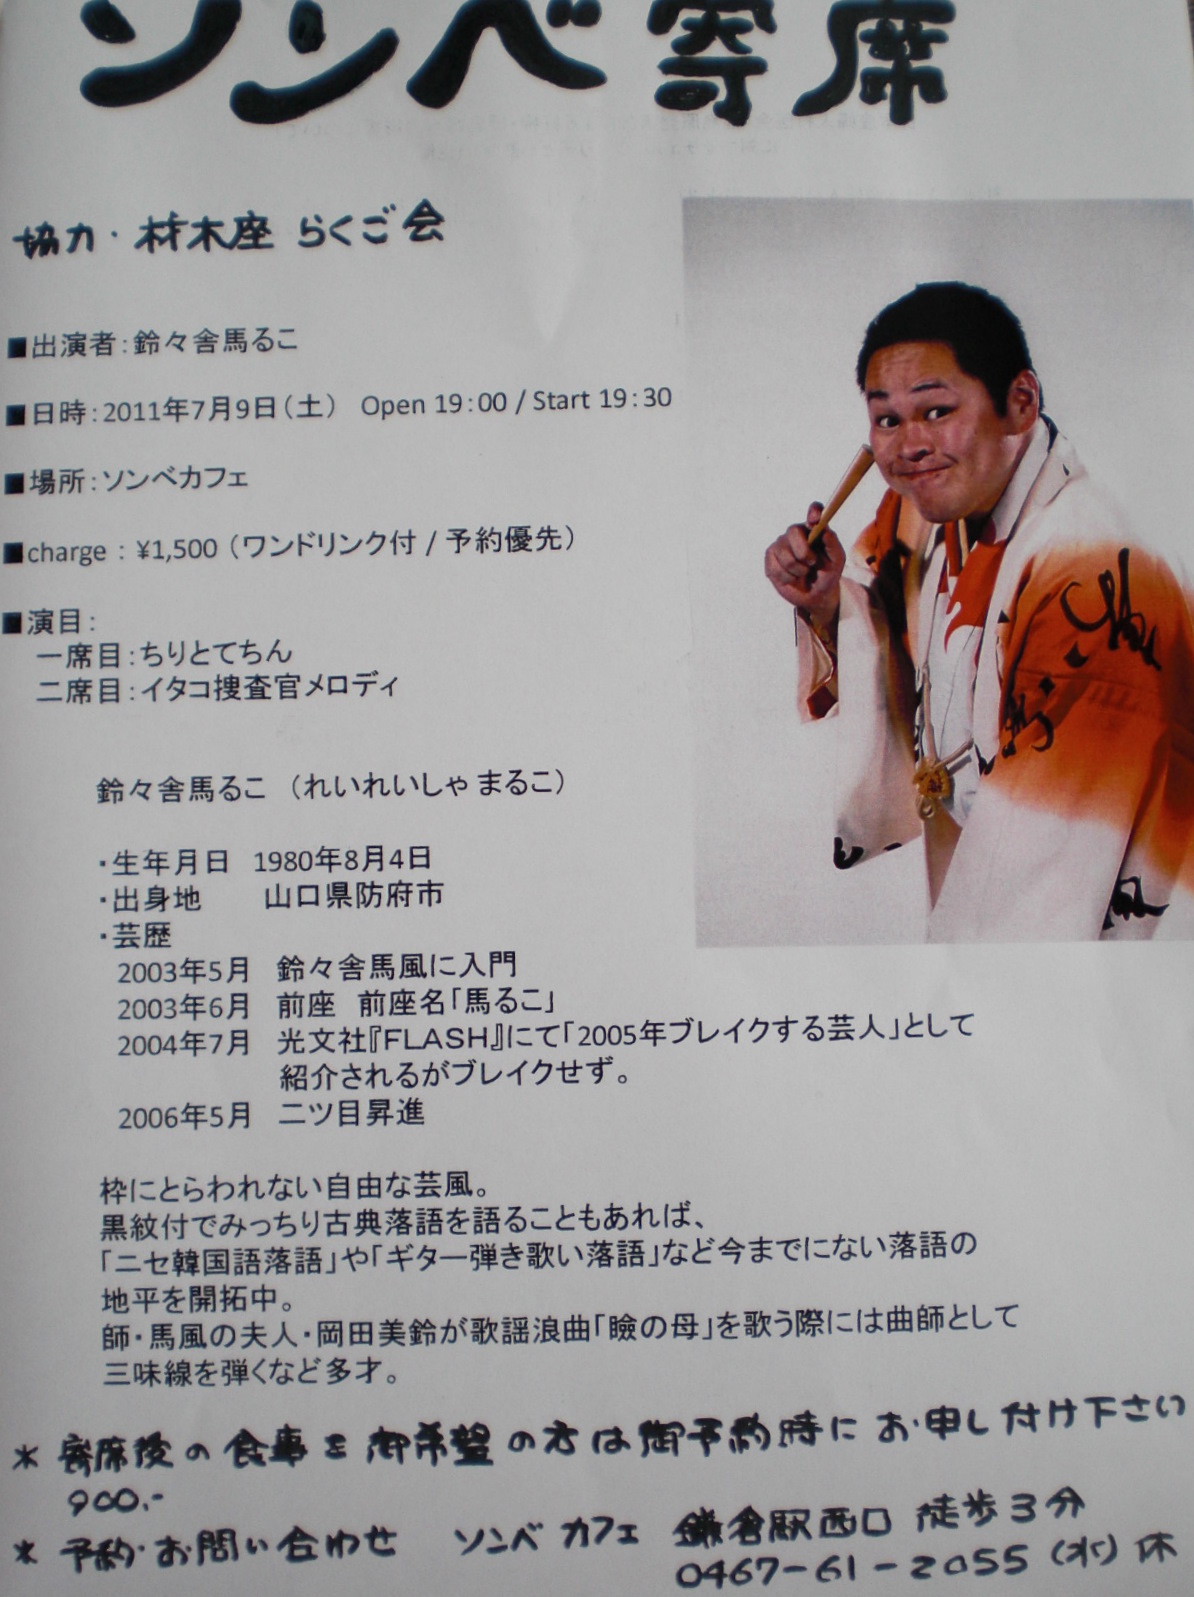 ソンベ寄席
協力・材木座 らくご会
■出演者：鈴々舎馬るこ
■日時：2011年7月9日（土） Open 19：00 / Start 19：30
■場所：ソンベカフェ
■charge ： ¥1,500（ワンドリンク付 / 予約優先）
■演目：
一席目：ちりとてちん
二席目：イタコ捜査官メロディ
鈴々舎馬るこ （れいれいしゃ まるこ）
・生年月日 1980年8月4日
・出身地 山口県防府市
・芸歴
2003年5月 鈴々舎馬風に入門
2003年6月 前座 前座名「馬るこ」
2004年7月 光文社『FLASH』にて「2005年ブレイクする芸人」として
紹介されるがブレイクせず。
2006年5月 二ツ目昇進
枠にとらわれない自由な芸風。
黒紋付でみっちり古典落語を語ることもあれば、
「ニセ韓国語落語」や「ギター弾き歌い落語」など今までにない落語の
地平を開拓中。
師・馬風の夫人・岡田美鈴が歌謡浪曲「瞼の母」を歌う際には曲師として
三味線を弾くなど多才。
＊ 寄席後の食事を御希望の方は御予約時にお申し付け下さい
900.-
＊ 予約・お問い合わせ ソンベ カフェ 鎌倉駅西口 徒歩3分
0467-61-2055 （水）休